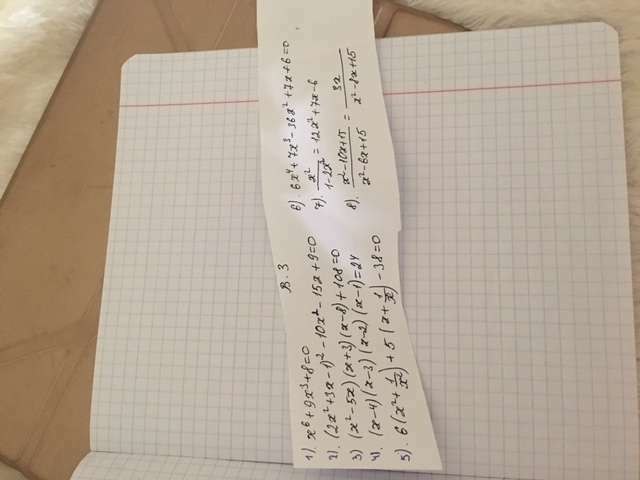 В. 3
1) x⁶ + 9x³ + 8 = 0
2). (2x² + 3x - 1)² - 10x² - 15x + 9 = 0
3) (x² - 5x)(x + 3)(x - 8) + 108 = 0
4). (x - 4)(x - 3)(x - 2)(x - 1) = 24
5). 6(x² + 1/x²) + 5(x + 1/x) - 38 = 0
6). 6x⁴ + 7x³ - 36x² + 7x + 6 = 0
7). x²/(1 - 2x²) = 12x² + 7x - 6
8). (x² - 10x + 15)/(x² - 6x + 15) = 3x/(x² - 8x + 15)